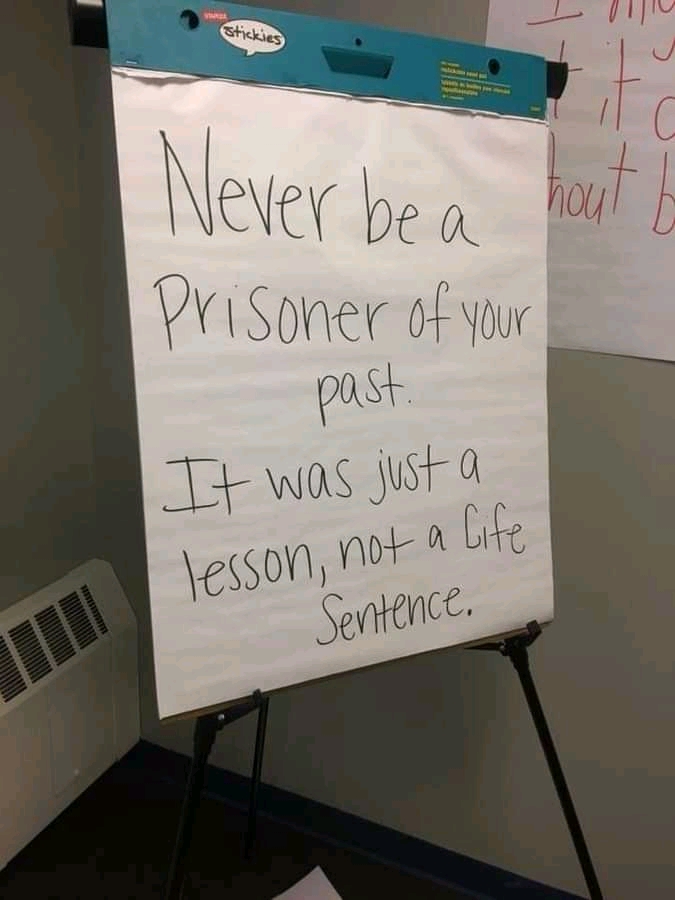 STAPLES
stickies
Never be a
Prisoner of your
past.
It was just a
lesson, not a life
Sentence.
it
b